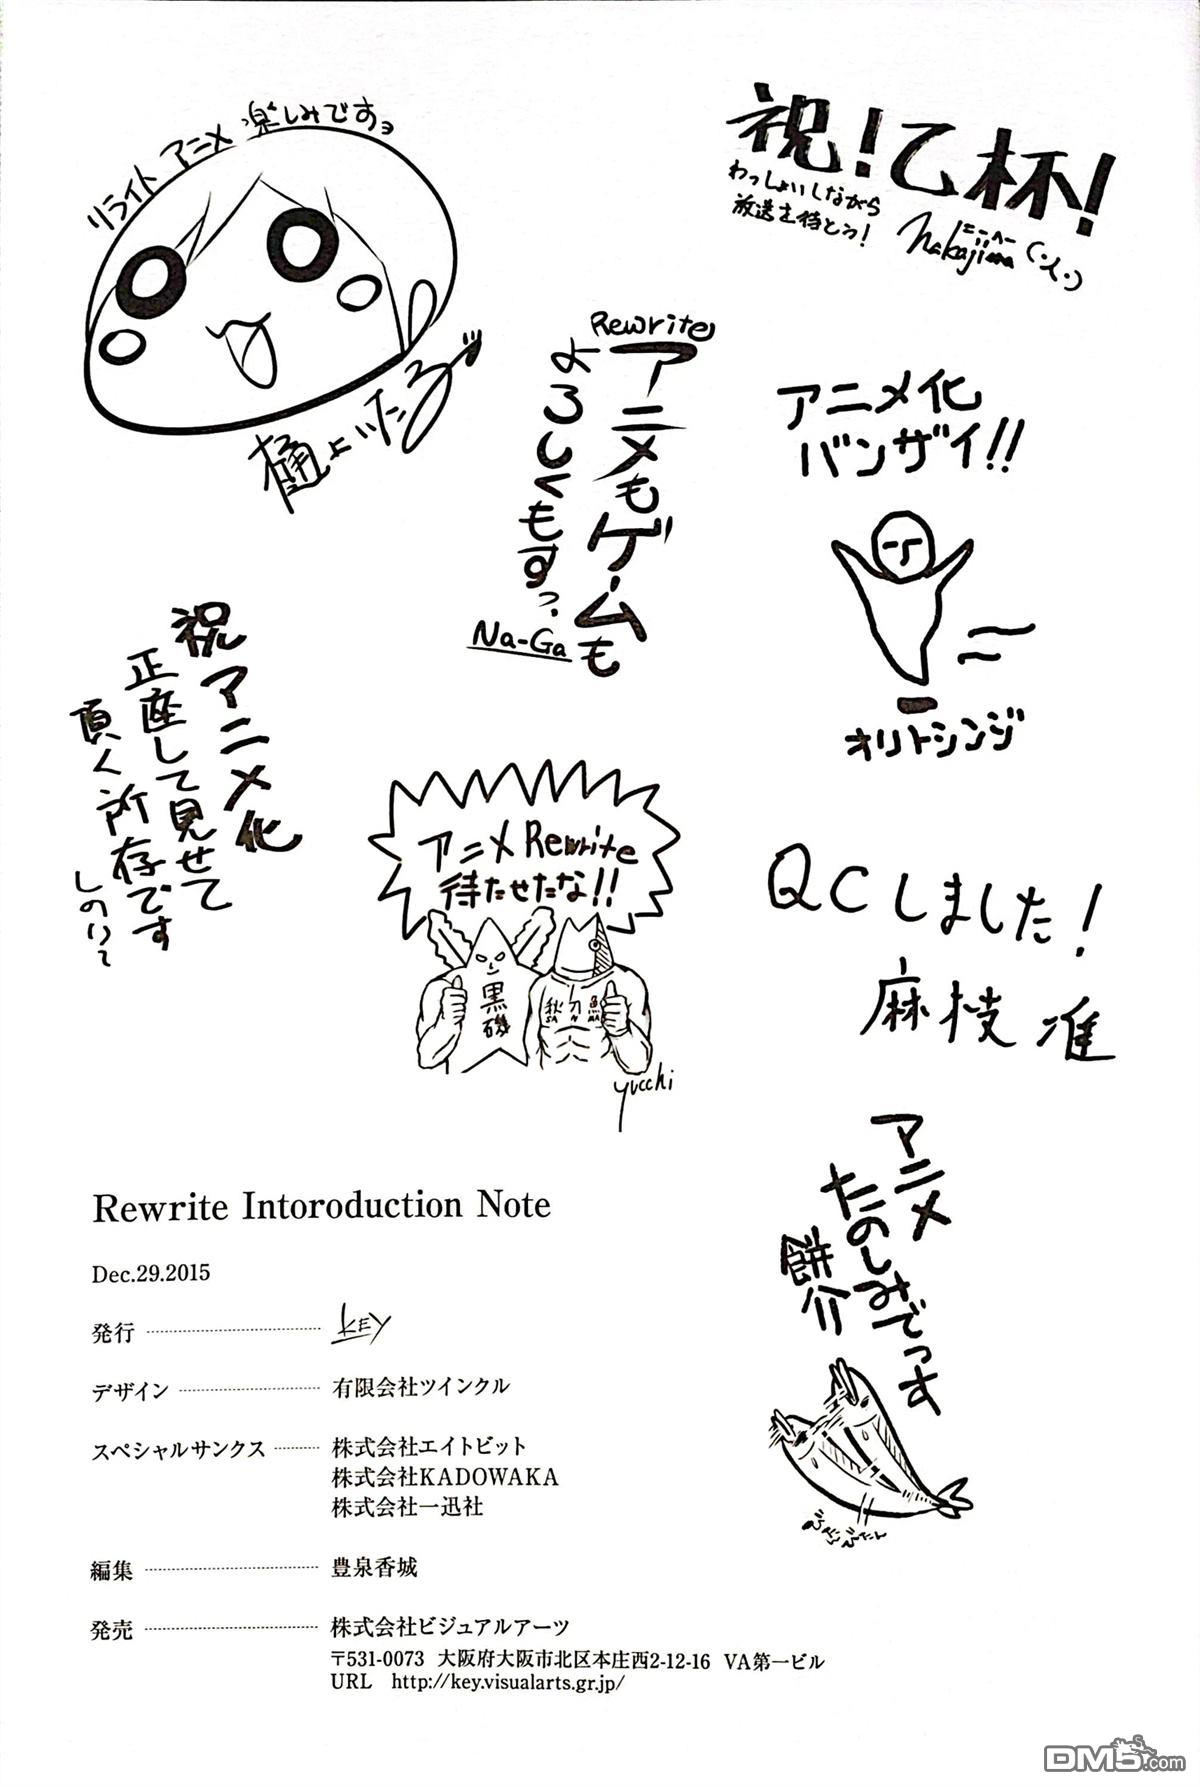 リライト アニメ 楽しみですョ
樋上いたる
祝!乙杯!
わっしょいしながら
放送を待とう!
Nakajima
Rewrite
アニメもゲームも
よろしくもすっ。
Na-Ga
アニメ化
バンザイ!!
オリトシンジ
祝アニメ化
正座して見せて
頂く所存です
しのりて
アニメRewrite
待たせたな!!
黒磯
秋刀魚
SANMA
yucchi
QCしました!
麻枝 准
アニメ
たのしみでっす
餅介
Rewrite Intoroduction Note
Dec.29.2015
発行 KEY
デザイン 有限会社ツインクル
スペシャルサンクス 株式会社エイトビット
株式会社KADOWAKA
株式会社一迅社
編集 豊泉香城
発売 株式会社ビジュアルアーツ
〒531-0073 大阪府大阪市北区本庄西2-12-16 VA第一ビル
URL http://key.visualarts.gr.jp/
DM5.com